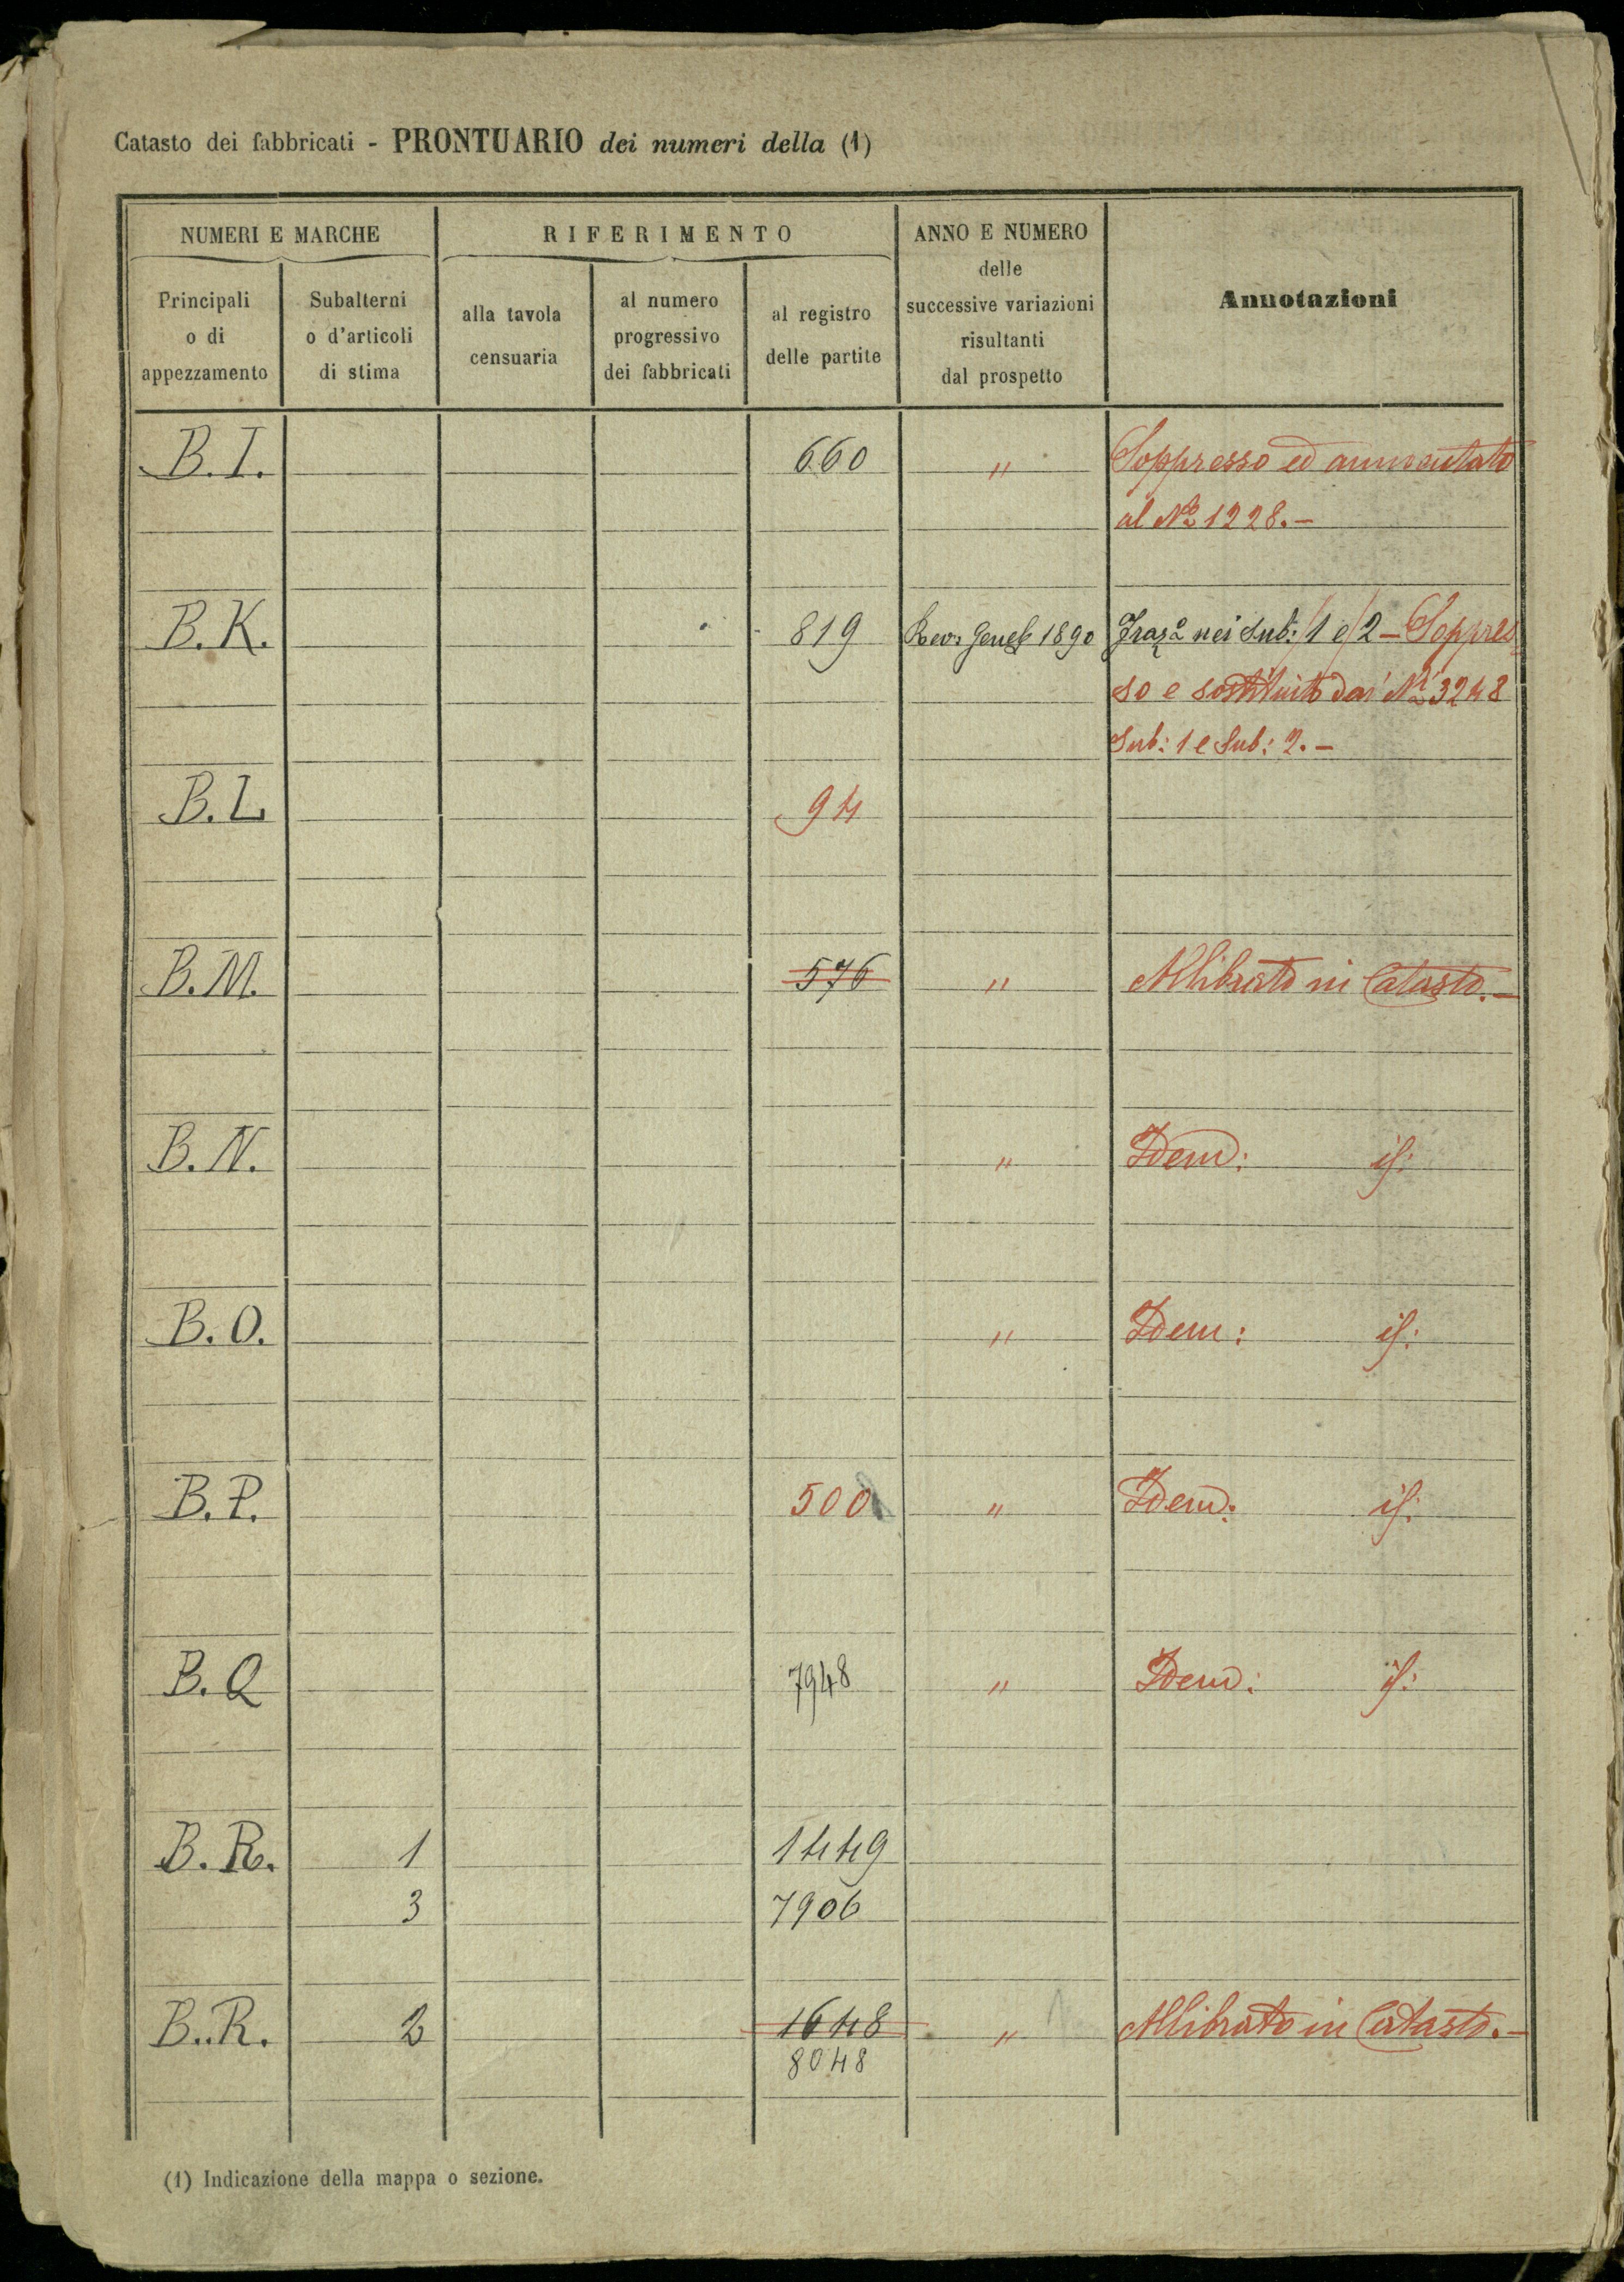 Catasto dei fabbricati - PRONTUARIO dei numeri della (1)
NUMERI E MARCHE
RIFERIMENTO
ANNO E NUMERO
delle
successive variazioni
risultanti
dal prospetto
Annotazioni
Principali
o di
appezzamento
Subalterni
o d'articoli
di stima
alla tavola
censuaria
al numero
progressivo
dei fabbricati
al registro
delle partite
B.I. 660 " Soppresso ed
al No 1228.-
B.K. 819 Rev. 1890 nei Sub: 1 e 2 - Soppres
so e sostituito dai Ni 3248
Sub: 1 e Sub: 2.-
B.L 94
B.M. 576 " Allibrato in Catasto.-
B.N. " Idem: if:
B.O. " Idem: if:
B.P. 500 " Idem: if:
B.Q 7948 " Idem: if:
B.R. 1 1449
3 7906
B.R. 2 1648 " Allibrato in Catasto.-
8048
(1) Indicazione della mappa o sezione.